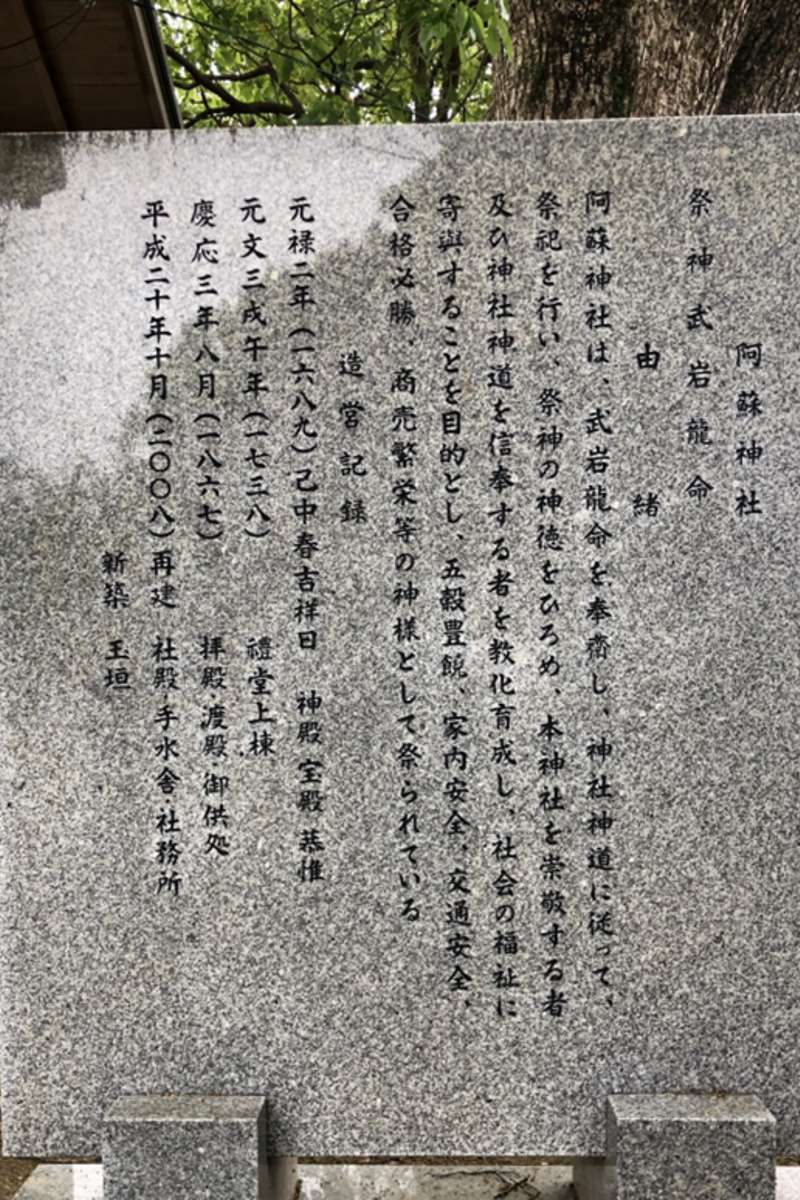 阿蘇神社
祭神武岩龍命
由緒
阿蘇神社は、武岩龍命を奉斎し、神社神道に従って、
祭祀を行い、祭神の神徳をひろめ、本神社を崇敬する者
及び神社神道を信奉する者を教化育成し、社会の福祉に
寄與することを目的とし、五穀豊饒、家内安全、交通安全、
合格必勝、商売繁栄等の神様として祭られている
造営記録
元禄二年(一六八九)己中春吉祥日 神殿 宝殿 恭惟
元文三戌午年(一七三八) 禮堂上棟
慶応三年八月(一八六七) 拝殿・渡殿・御供処
平成二十年十月(二〇〇八)再建 社殿・手水舎・社務所
新築 玉垣